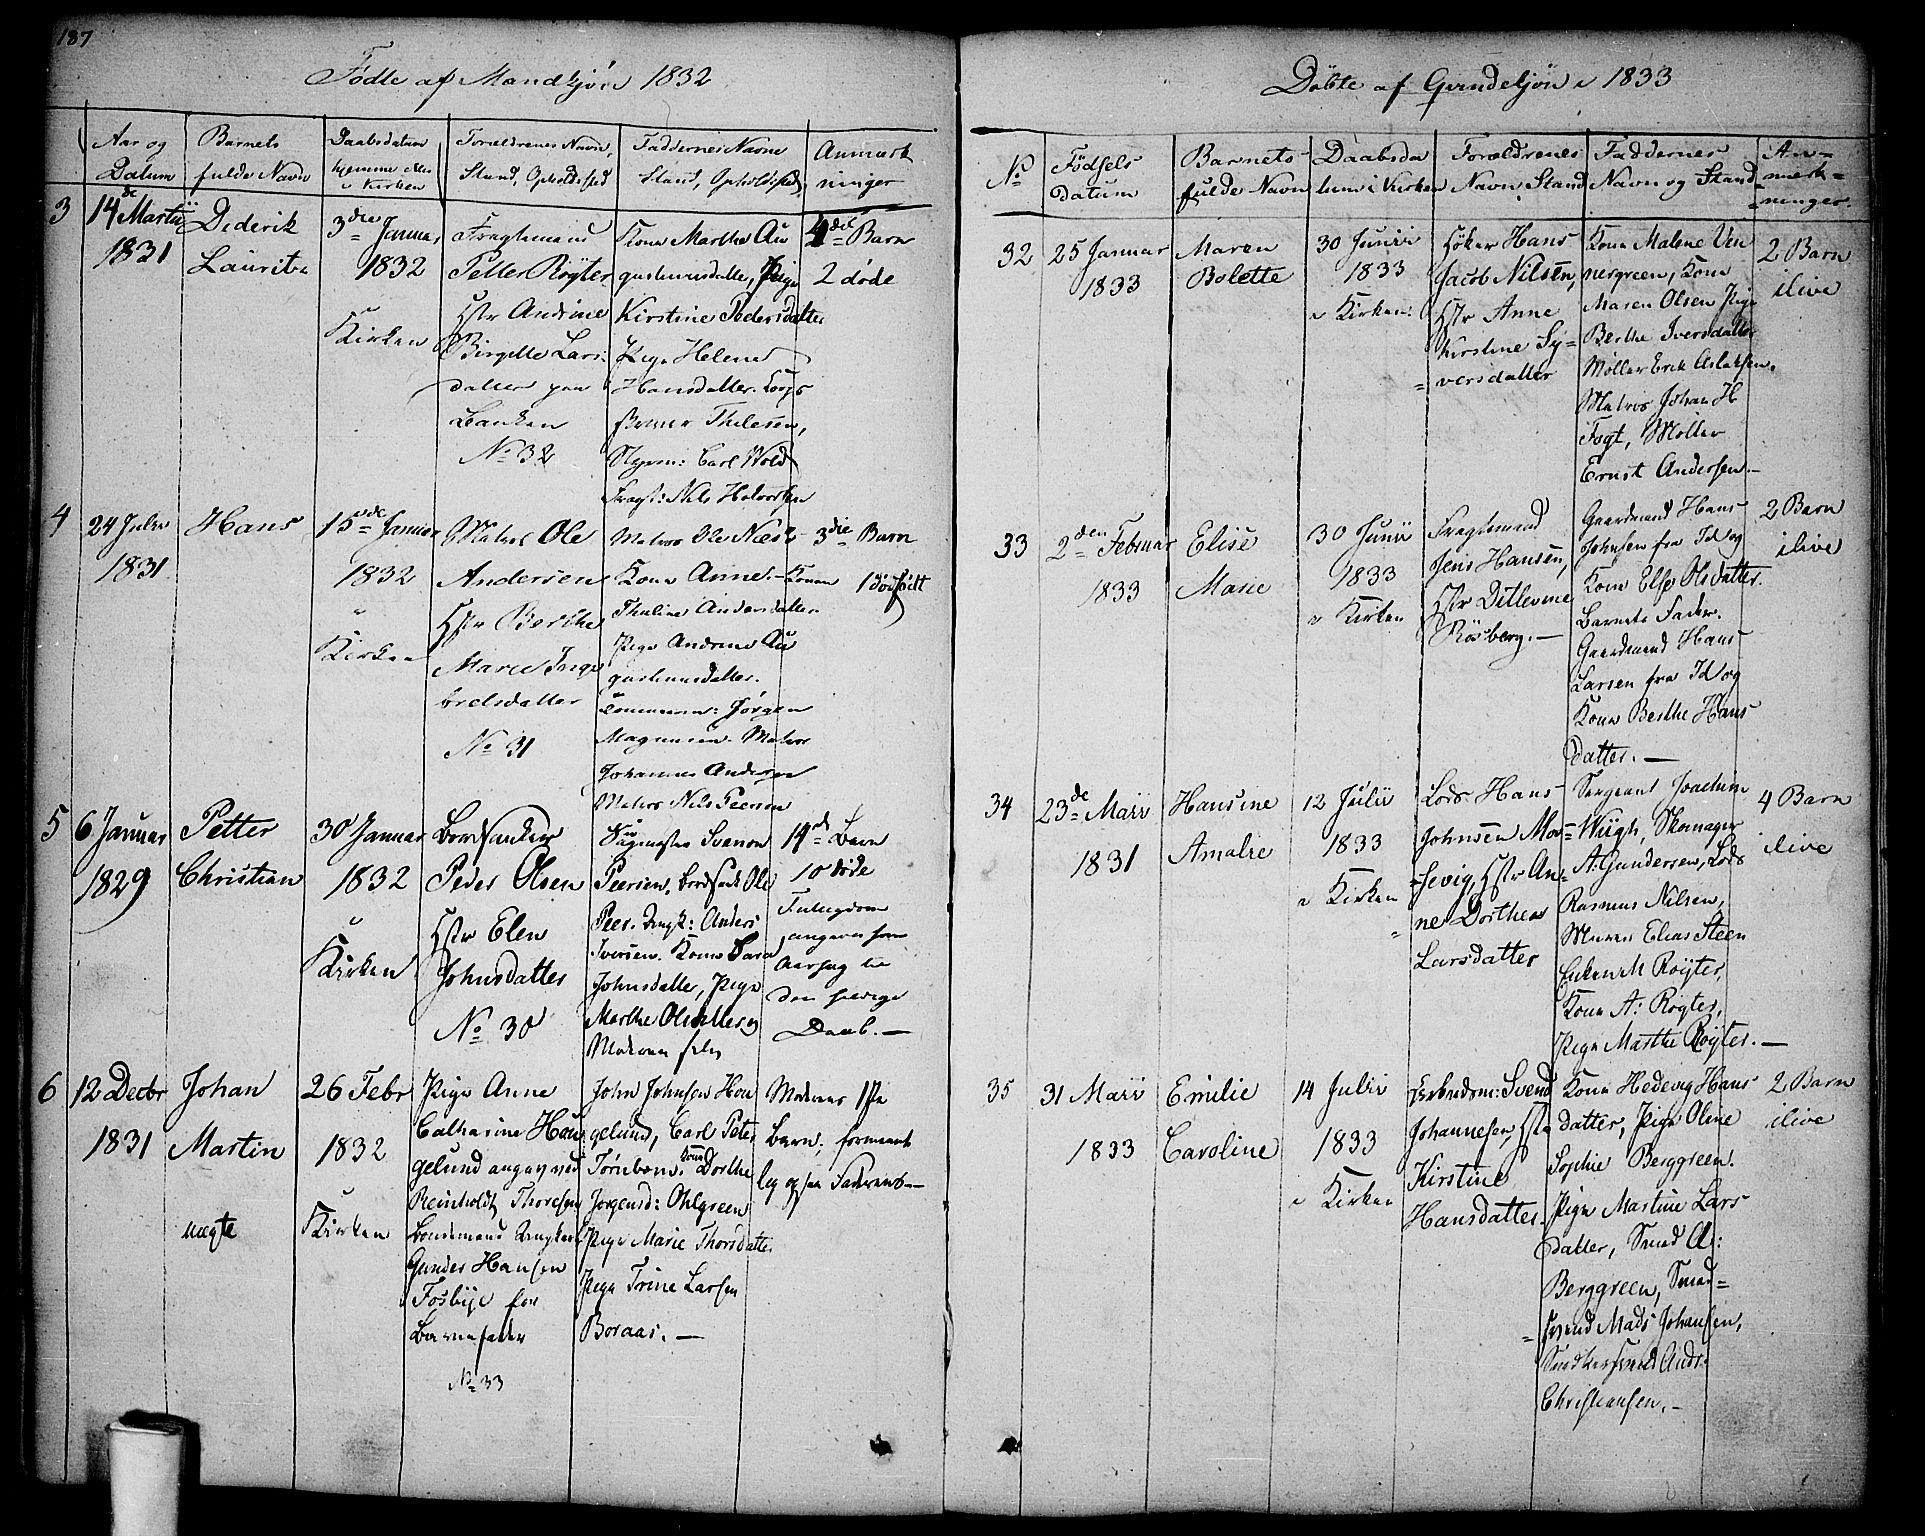 187
Födte af Mandkjön 1832
Aar og
Datum
Barnets
fulde Navn
Daabsdatum
hjemme eller
i Kirken
Forældrenes Navn,
Stand, Opholdsted
Faddernes Navne
Stand, Opholdsted
Anmærk
ninger
3
14de Martii
1831
Diderik
Lauritz
3die Januar
1832
i
Kirken
Fragtmand
Petter Röyter
Hstr Andrine
Birgitte Lars:
datter paa
Banken
No 32
Kone Marthe Au
gustinusdatter, Pige
Kirstine Pedersdatter
Pige Helene
Hansdatter. Korps
skriver Thilesen,
Styrm: Carl Wold
Fragt: Nils Halvorsen
4de Barn
2 døde
4
24 Julii
1831
Hans
15de Januar
1832
i
Kirken
Matros Ole
Andersen
Hstr Berthe
Marie Inge
bretsdatter
No 31
Matros Ole Næs
Kone Anne. - Konen
Thaline Andersdatter
Pige Andrine Au
gustinusdatter.
Jørgen
Magnusen. Matros
Johannes Andersen
Matros Nils Peersen
3die Barn
1 dødfödt
5
6 Januar
1829
Petter
Christian
30 Januar
1832
i
Kirken
Bordsanker
Peder Olsen
Hstr Elen
Johnsdatter
No 30
Svenon
Peersen, Bordsank Ole
Peer. Brygt: Anders
Iversen. Kone Sara
Johnsdatter, Pige
Marthe Olsdatter og
Moderen selv
14de Barn
10 døde
Fattigdom
angaves som
Aarsag til
den silde
Daab. —
6
12 Decbr
1831
Johan
Martin
uægte
26 Febr
1832
i
Kirken
Pige Anne
Catharine Hau
gelund angav ved
Reinholdt Thoresen
Bondemand
Gunder Hansen
Fosbye for
Barnefader
No 33
John Johnsen Hau
gelund, Carl Peter
Törnbom. Kone Dorthe
Jörgensd: Ohlgreen
Pige Marie Thorsdatter
Pige Trine Larsen
Boraas. —
Moderens 1ste
Barn, forment
lig ogsaa Faderens —
Döbte af Qvindekjön i 1833
No
Födsels
Datum
Barnets
fulde Navn
Daabsda
tum i Kirken
Forældrenes
Navn Stand
Faddernes
Navn og Stand
An=
mærk=
ninger.
32
25 Januar
1833
Maren
Bolette
30 Junii
1833
i Kirken:
Höker Hans
Jacob Nilsen,
Hstr Anne
Kirstine Sy=
= versdatter
Kone Malene Ven
nergreen, Kone
Maren Olsen Pige
Berthe Iversdatter
Möller Erik Aslaksen.
Matros Johan H
Fogt, Möller
Ernst Andersen. —
2 Barn
ilive
33
2den Februar
1833
Elise
Marie
30 Junii
1833
i Kirken
Fragtmand
Jens Hansen,
Hstr Ditlevine
Rösberg. —
Gaardmand Hans
Johnsen fra Id og
Kone Else Olsdatter.
Barnets Fader.
Gaardmand Hans
Larsen fra Id og
Kone Berthe Hans
datter. —
2 Barn
ilive
34
23de Maii
1831
Hansine
Amalie
12 Julii
1833
i Kirken
Lods Hans
Johnsen Mos=
=sevig, Hstr An=
ne Dorthea
Larsdatter
Sergeant Joachim
Wiigh, Skomager
A. Gundersen, Lods
Rasmus Nilsen,
Murer Elias Steen
Enken M Röyter,
Kone A: Röyter,
Pige Marthe Röyter. —
4 Barn
ilive
35
31 Maii
1833
Emilie
Caroline
14 Julii
1833
i Kirken
Arbeidsm: Svend
Johannesen, Hstr
Kirstine
Hansdatter.
Kone Hedevig Hans
datter, Pige Oline
Sophie Berggreen.
Pige Martine Lars
datter, Smed A:
Berggreen, Smed=
= svend Mads Johansen,
Snedkersvend Andr.
Christiansen. —
2 Barn
ilive